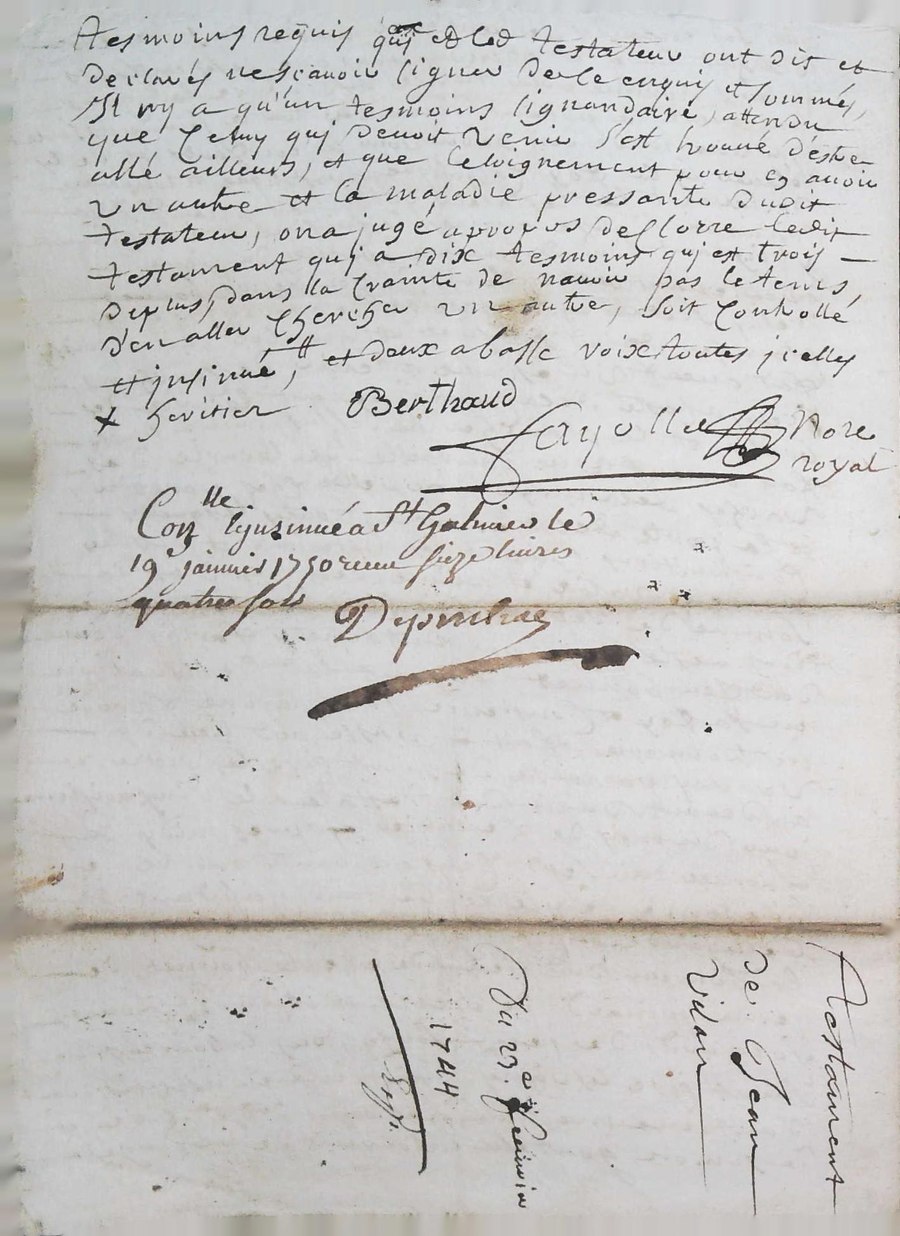 tesmoins requis qui et led testateur ont dit et
declarés ne scavoir signer de ce enquis et sommés,
Il ny a qu'un tesmoins signandaire, attendu
que Celuy qui devoit venir s'est trouvé d'estre
allé ailleurs, et que leloignement pour en avoir
un autre et la maladie pressante dudit
testateur, on a jugé apropos de Clorre ledit
testament qui a dix tesmoins qui est trois
deplus, dans la Crainte de navoir pas le tems,
d'en aller Chercher un autre, soit Controllé
et jnsinué, et deux a basse voix toutes jcelles
x heritier Berthaud
Fayolle Nore
royal
Conlle & jnsinué a St Galmier le
19e janvier 1750 receu seize livres
quatre sols
Testament
de Jean
Vidau
Du 23e
1744